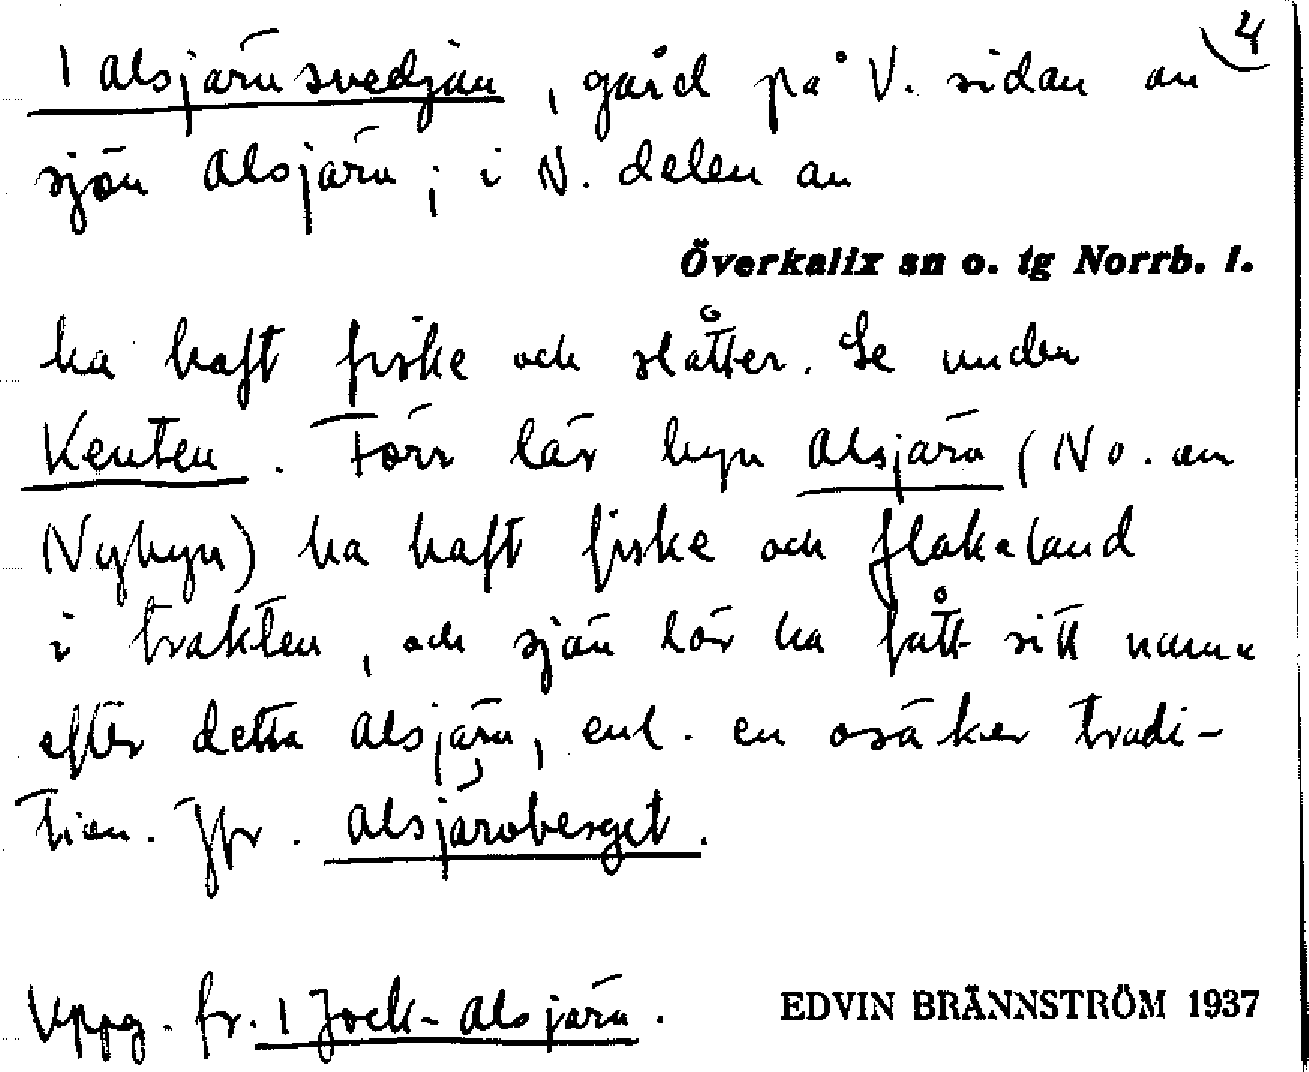 4
1 Alsjärvsvedjan, gård på V. sidan av
sjön Alsjärv; i N. delen av
Överkalix sn o. tg Norrb. l.
ha haft fiske och slåtter. Se under
Kenten. Förr lär byn Alsjärv (No. om
Nybyn) ha haft fiske och flakaland
i trakten, och sjön lär ha fått sitt namn
efter detta Alsjärv, enl. en osäker tradi-
tion. Jfr. Alsjärvberget.
Uppg. fr. 1 Jock-Alsjärv.
EDVIN BRÄNNSTRÖM 1937